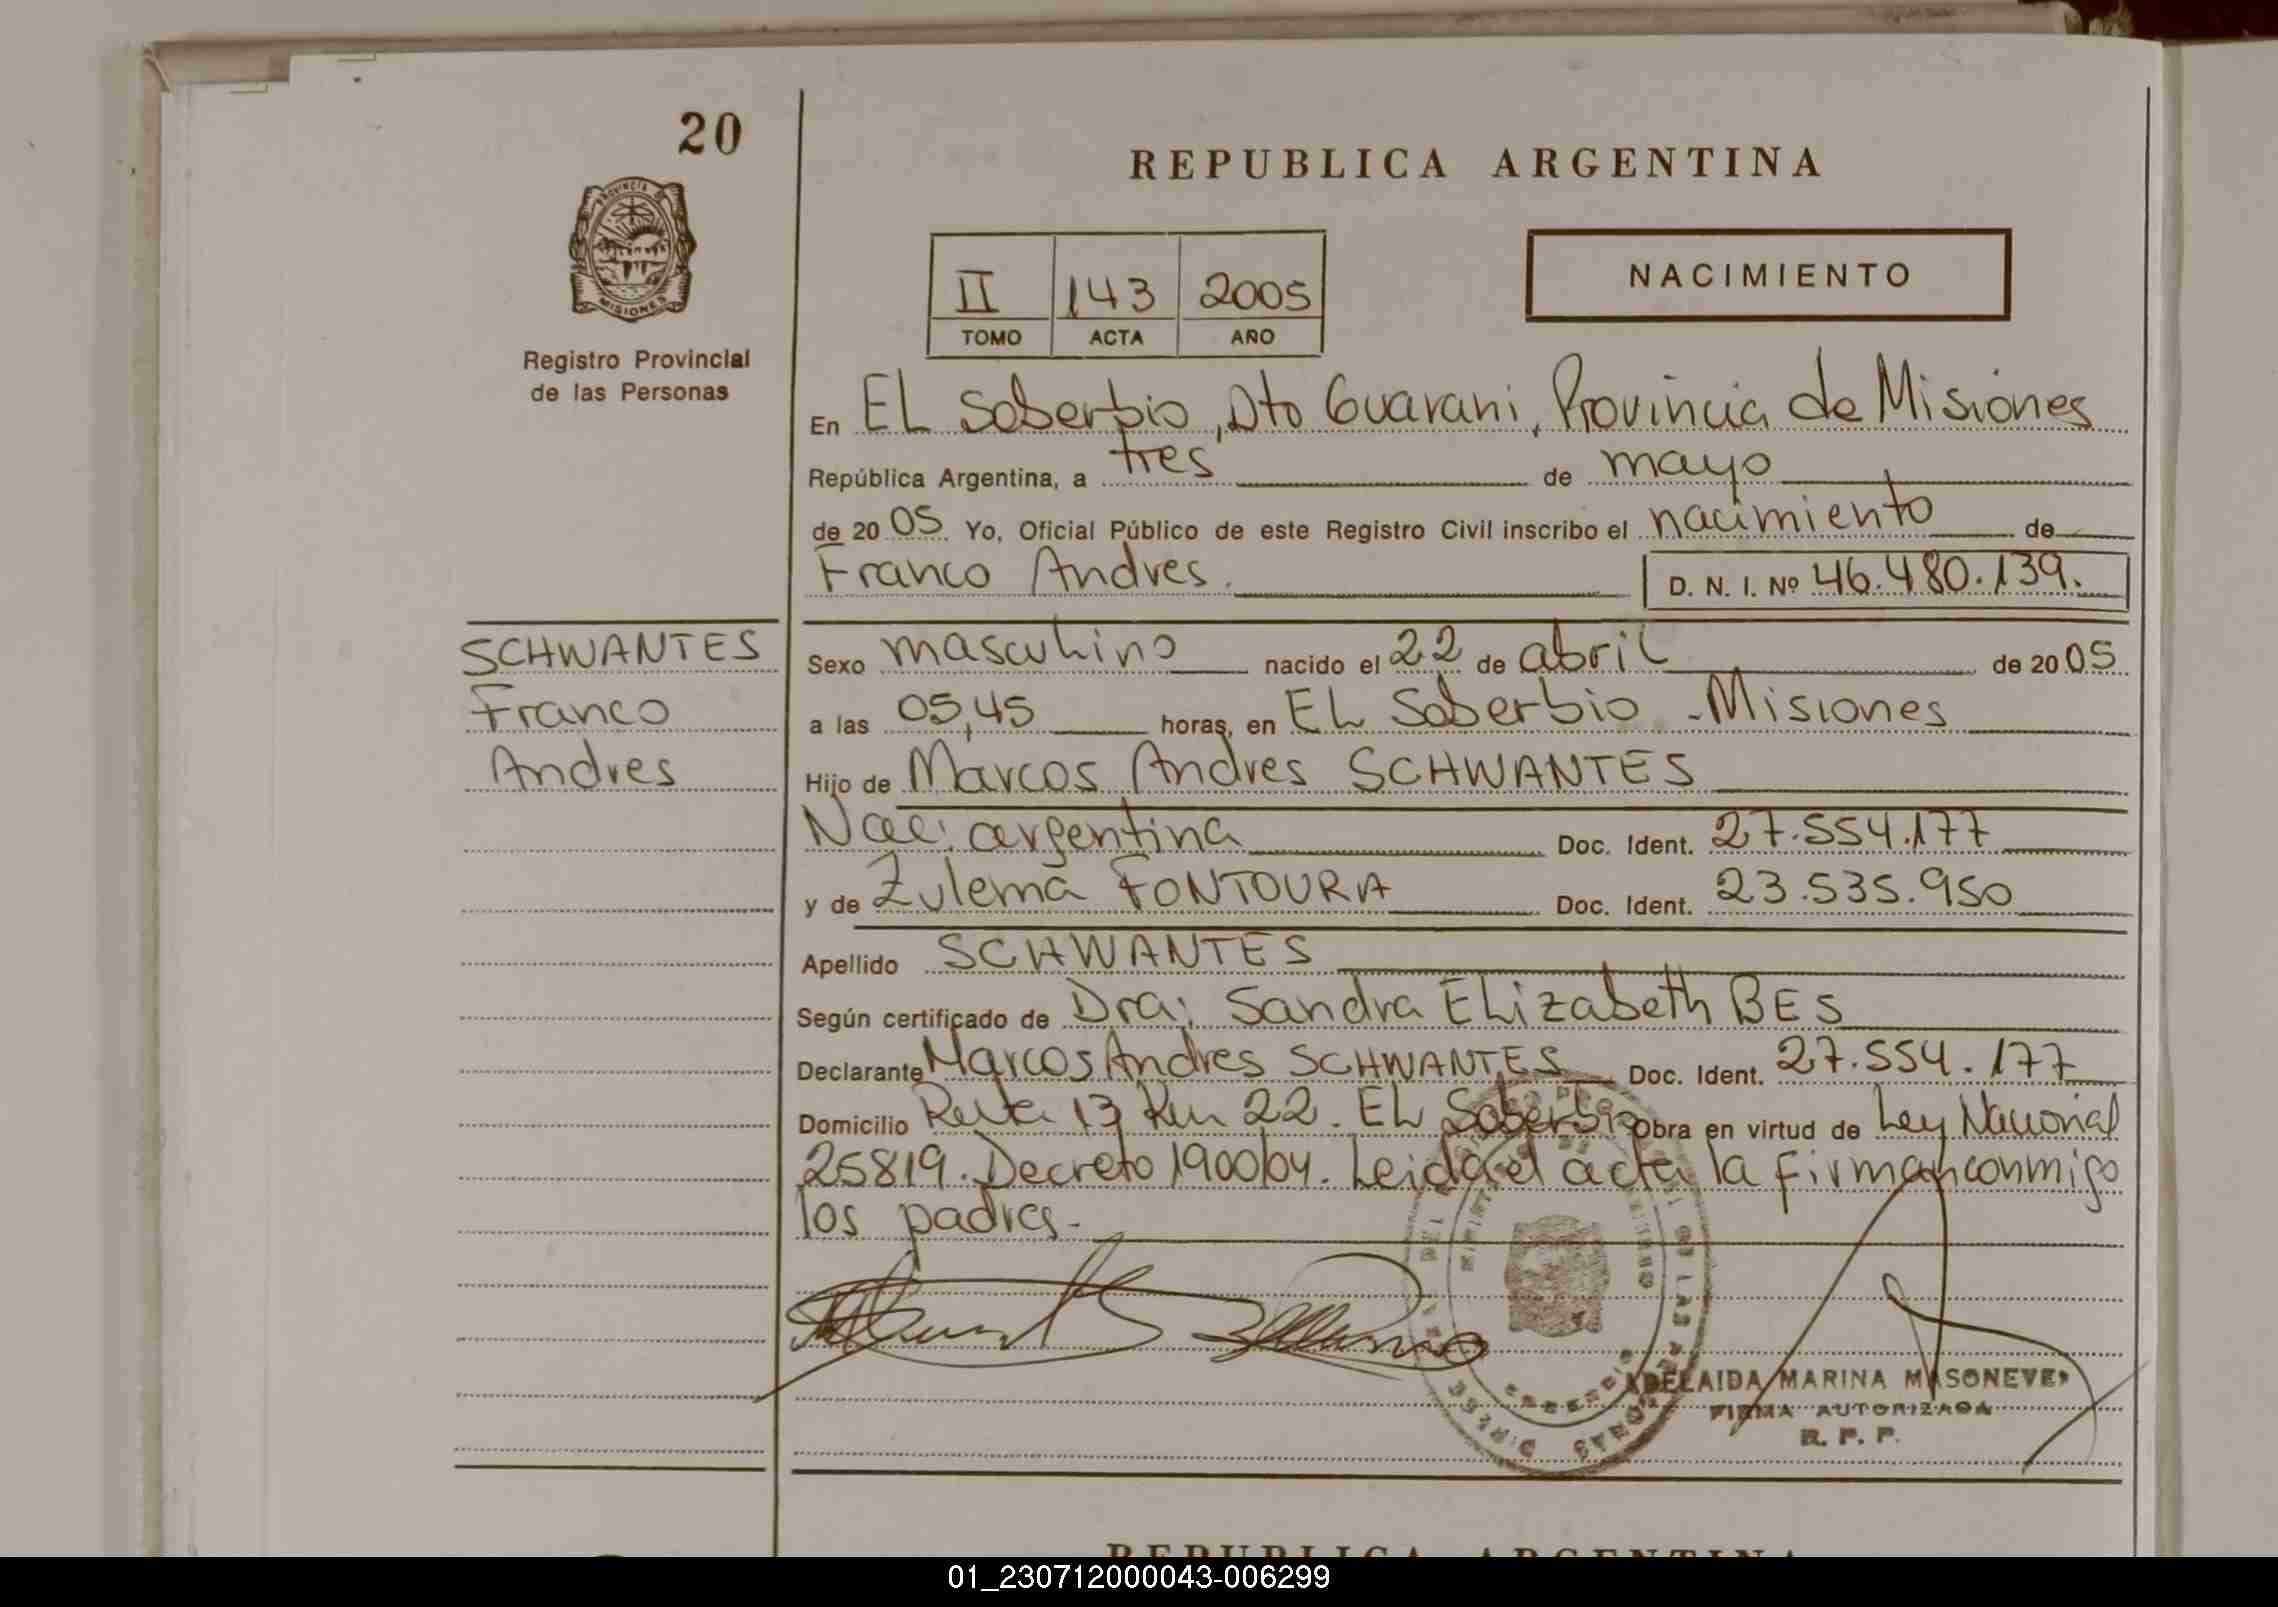 20
REPUBLICA ARGENTINA
PROVINCIA DE
MISIONES
NACIMIENTO
II 143 2005
TOMO ACTA AÑO
Registro Provincial
de las Personas
En EL Soberbio, Dto Guarani, Provincia de Misiones
República Argentina, a tres de mayo
de 20 05 Yo, Oficial Público de este Registro Civil inscribo el nacimiento de
Franco Andres. D. N. I. Nº 46.480.139.
SCHWANTES
Franco
Andres
Sexo masculino nacido el 22 de abril de 20 05
a las 05,45 horas, en EL Soberbio - Misiones
Hijo de Marcos Andres SCHWANTES
Nac: argentina Doc. Ident. 27.554.177
y de Zulema FONTOURA Doc. Ident. 23.535.950
Apellido SCHWANTES
Según certificado de Dra: Sandra Elizabeth BES
Declarante Marcos Andres SCHWANTES Doc. Ident. 27.554.177
Domicilio Ruta 13 Km 22. EL Soberbio Obra en virtud de Ley Nacional
25819. Decreto 1900/04. Leida el acta la firman conmigo
los padres.-
ADELAIDA MARINA
FIRMA AUTORIZADA
R. P. P.
REPUBLICA ARGENTINA
01_230712000043-006299